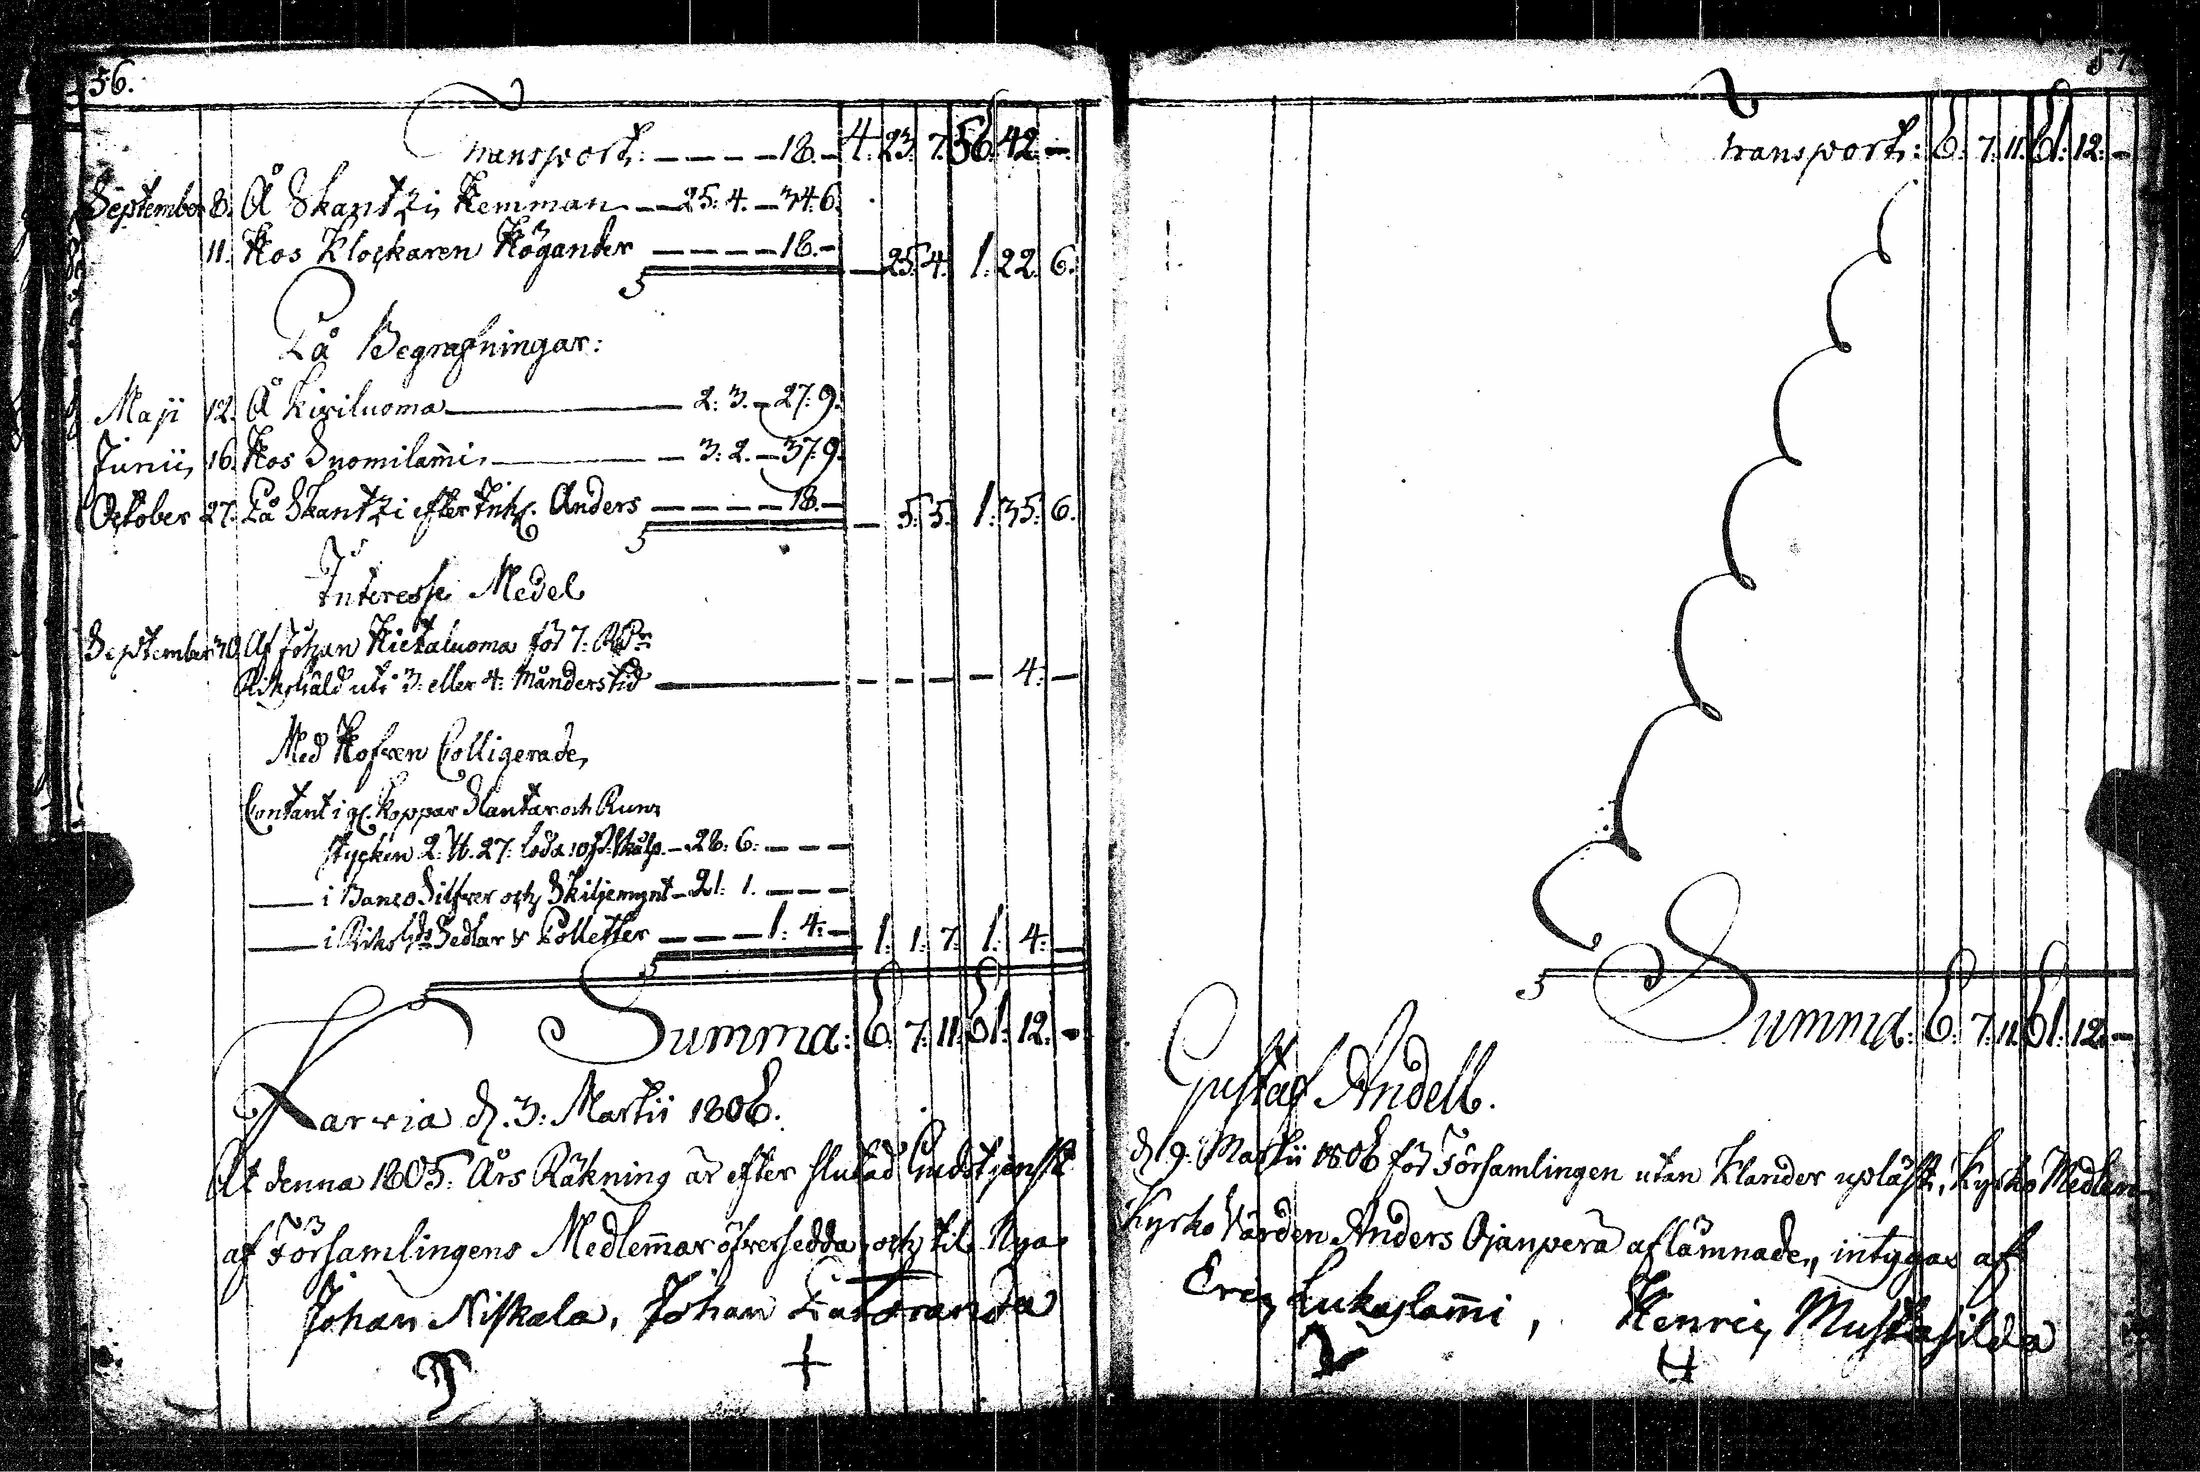 56.
Transport: — — — — 18. — 4. 23. 7. 56. 42. —
September 8. Å Skantzi Hemman — 25. 4. — 34. 6.
11. Hos Klockaren Högander — — — — 18. — — 25. 4. 1. 22. 6.
På Begrafningar:
Maji 12. Å Kiviluoma — 2. 3. — 27. 9.
Junii 16. Hos Suomilam̄i — 3. 2. — 37. 9.
October 27. På Skantzi efter Anders — — — — 18. — — 5. 5. 1. 35. 6.
Interesse Medel
September 30. Af Johan Hietaluoma för 7. RD:r
Riksgäld uti 3. eller 4. Månders tid — — — — — 4. —
Med Hofven Colligerade,
Contant i Koppar Slantar och Runs
stycken 2. ℔. 27. — 28. 6. — — —
— i Banco Silfver och Skiljemynt — 21. 1. — — —
— i Sedlar & Polletter — — — 1. 4. — 1. 1. 7. 1. 4. —
Summa: 6. 7. 11. 61. 12. —
Karvia d. 3. Martii 1806.
At denna 1805. Års Räkning är efter slutad Gudstjenst
af Församlingens Medlem̄ar öfversedda, och til Nya
Johan Niskala, Johan
+
57
Transport: 6. 7. 11. 61. 12. —
Summa: 6. 7. 11. 61. 12. —
Gustaf Andell.
d. 9. Martii 1806 för Församlingen utan Klander upläst, Kyrko Medlen
Kyrko Värden Anders Ojanperä aflämnade, intygar af
Eric Lukaslam̄i, Henric Mustasilda